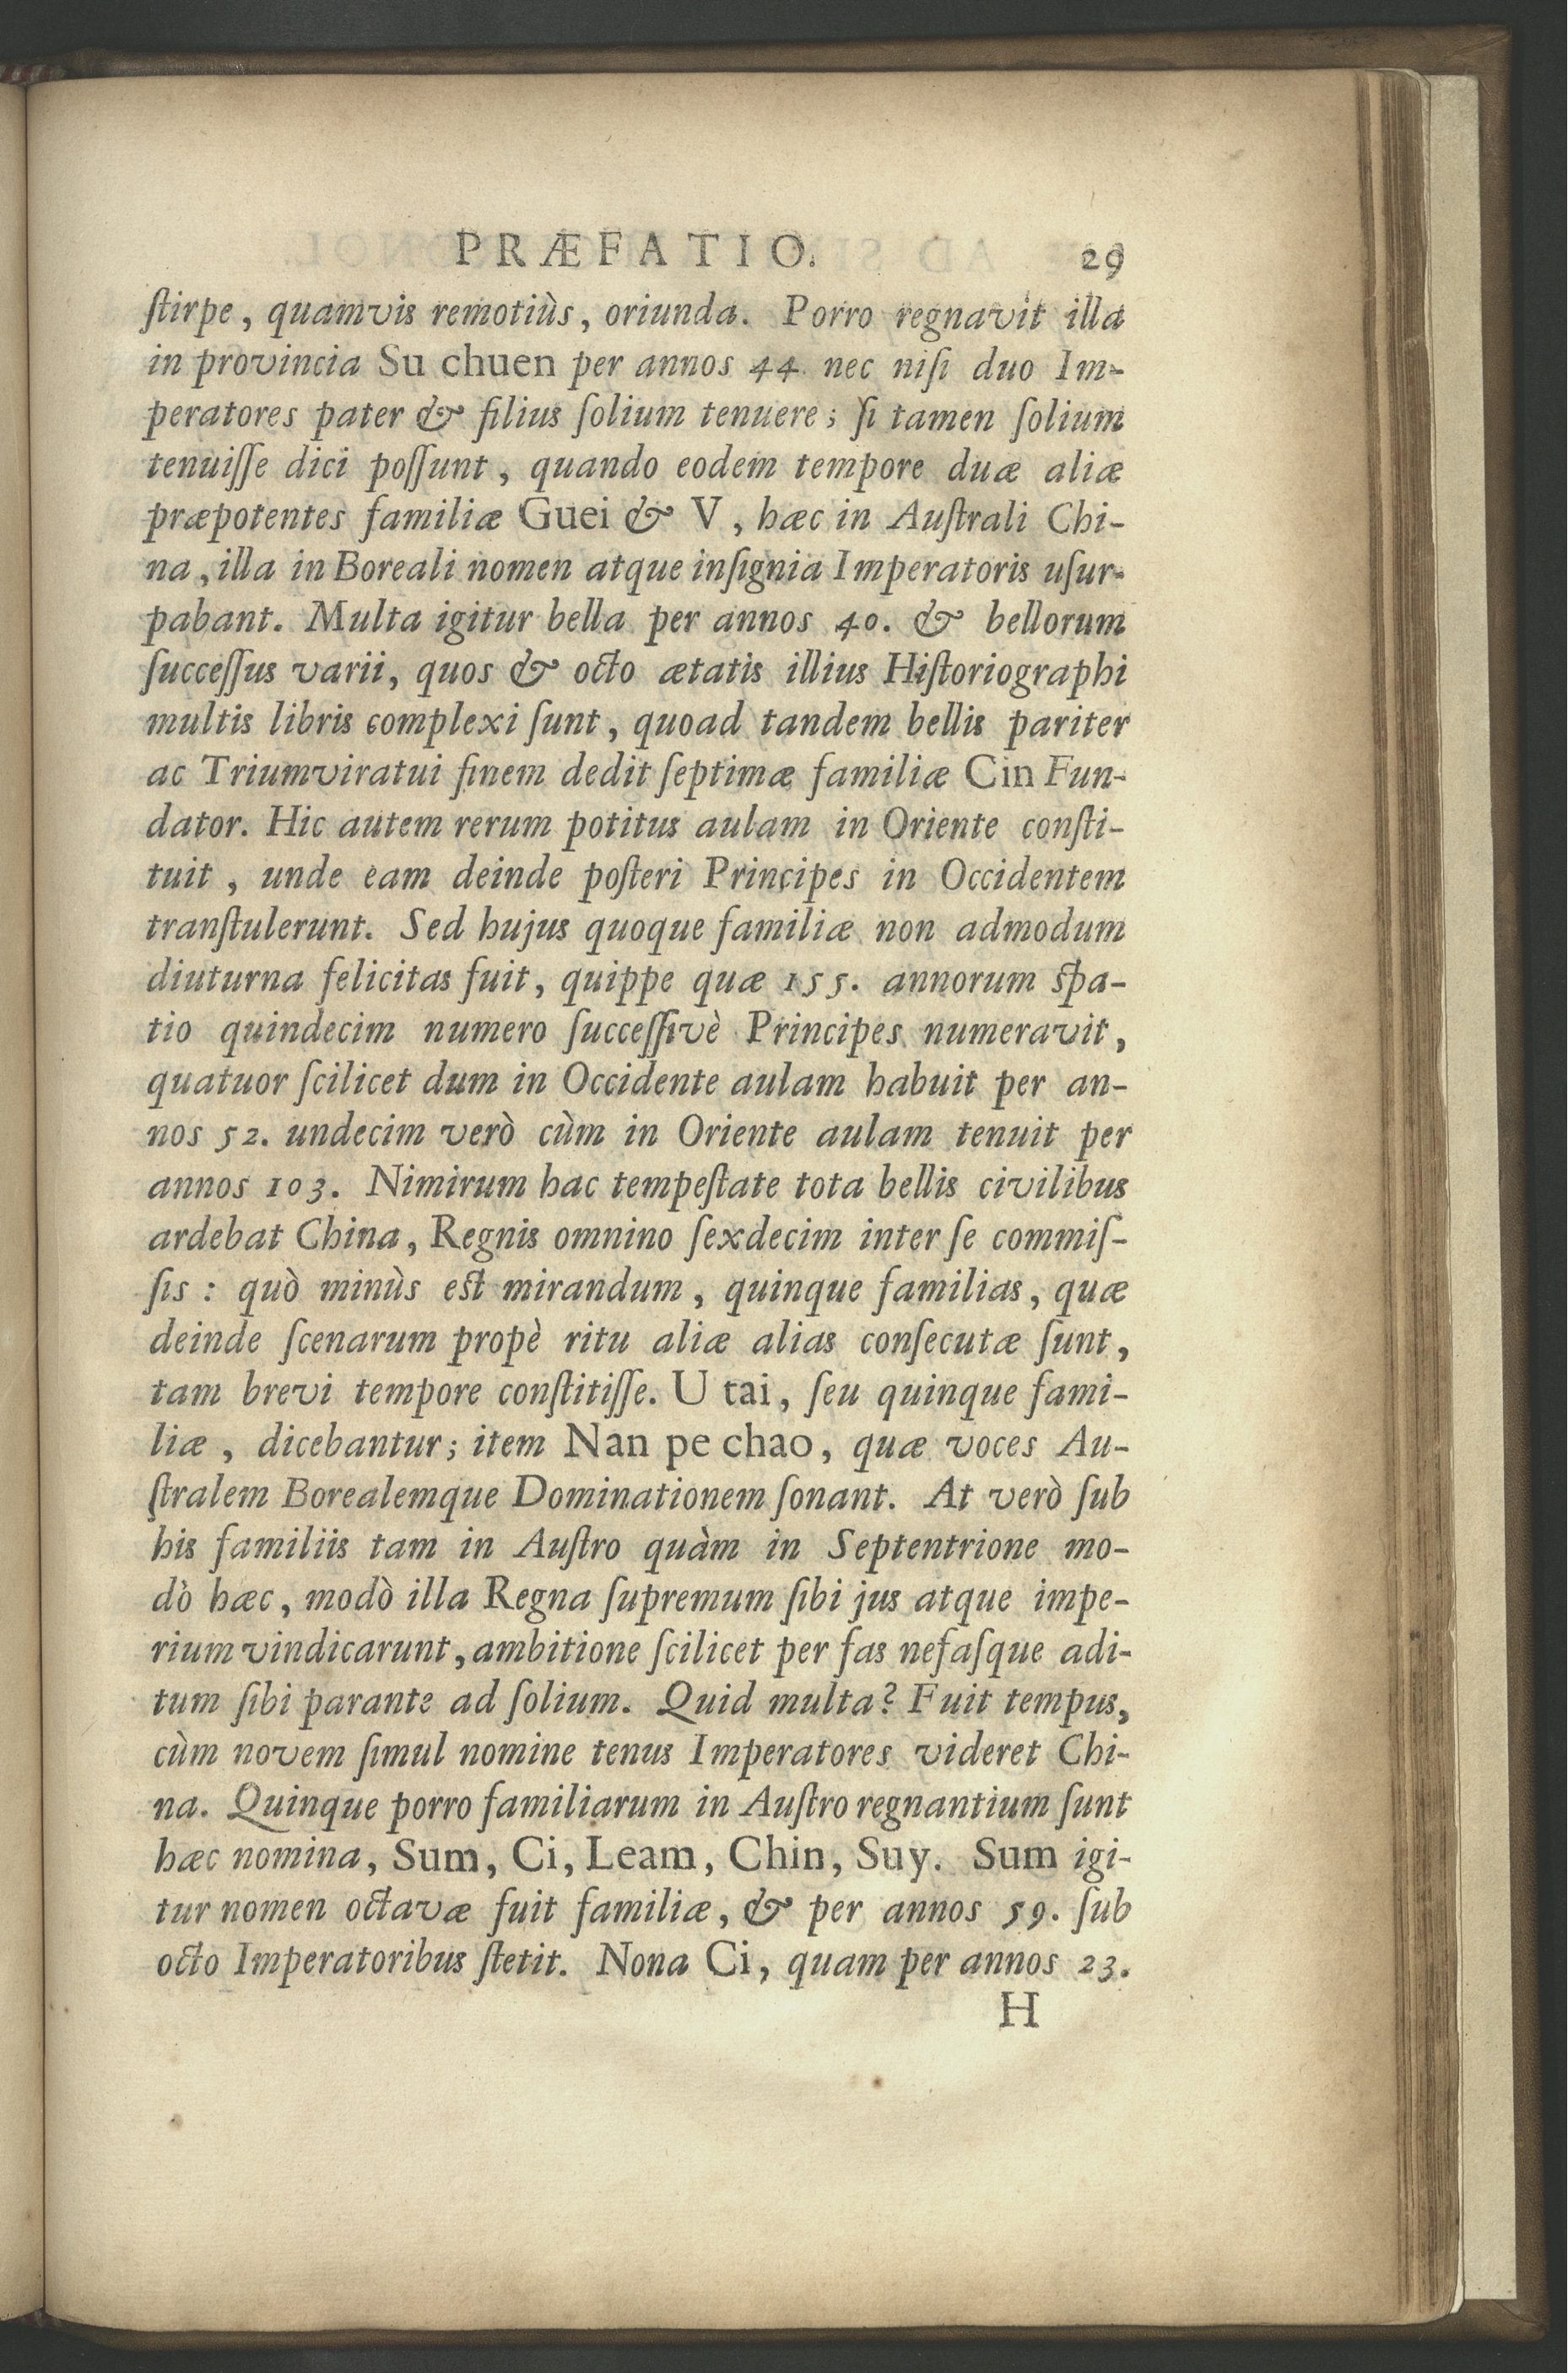 PRÆFATIO. 29
ſtirpe, quamvis remotiùs, oriunda. Porro regnavit illa
in provincia Su chuen per annos 44. nec niſi duo Im-
peratores pater & filius ſolium tenuere; ſi tamen ſolium
tenuiſſe dici poſſunt, quando eodem tempore duæ aliæ
præpotentes familiæ Guei & V, hæc in Auſtrali Chi-
na, illa in Boreali nomen atque inſignia Imperatoris uſur-
pabant. Multa igitur bella per annos 40. & bellorum
ſucceſſus varii, quos & octo ætatis illius Hiſtoriographi
multis libris complexi ſunt, quoad tandem bellis pariter
ac Triumviratui finem dedit ſeptimæ familiæ Cin Fun-
dator. Hic autem rerum potitus aulam in Oriente conſti-
tuit, unde eam deinde poſteri Principes in Occidentem
tranſtulerunt. Sed hujus quoque familiæ non admodum
diuturna felicitas fuit, quippe quæ 155. annorum ſpa-
tio quindecim numero ſucceſſivè Principes numeravit,
quatuor ſcilicet dum in Occidente aulam habuit per an-
nos 52. undecim verò cùm in Oriente aulam tenuit per
annos 103. Nimirum hac tempeſtate tota bellis civilibus
ardebat China, Regnis omnino ſexdecim inter ſe commiſ-
ſis: quò minùs eſt mirandum, quinque familias, quæ
deinde ſcenarum propè ritu aliæ alias conſecutæ ſunt,
tam brevi tempore conſtitiſſe. U tai, ſeu quinque fami-
liæ, dicebantur; item Nan pe chao, quæ voces Au-
ſtralem Borealemque Dominationem ſonant. At verò ſub
his familiis tam in Auſtro quàm in Septentrione mo-
dò hæc, modò illa Regna ſupremum ſibi jus atque impe-
rium vindicarunt, ambitione ſcilicet per fas nefaſque adi-
tum ſibi parante ad ſolium. Quid multa? Fuit tempus,
cùm novem ſimul nomine tenus Imperatores videret Chi-
na. Quinque porro familiarum in Auſtro regnantium ſunt
hæc nomina, Sum, Ci, Leam, Chin, Suy. Sum igi-
tur nomen octavæ fuit familiæ, & per annos 59. ſub
octo Imperatoribus ſtetit. Nona Ci, quam per annos 23.
H